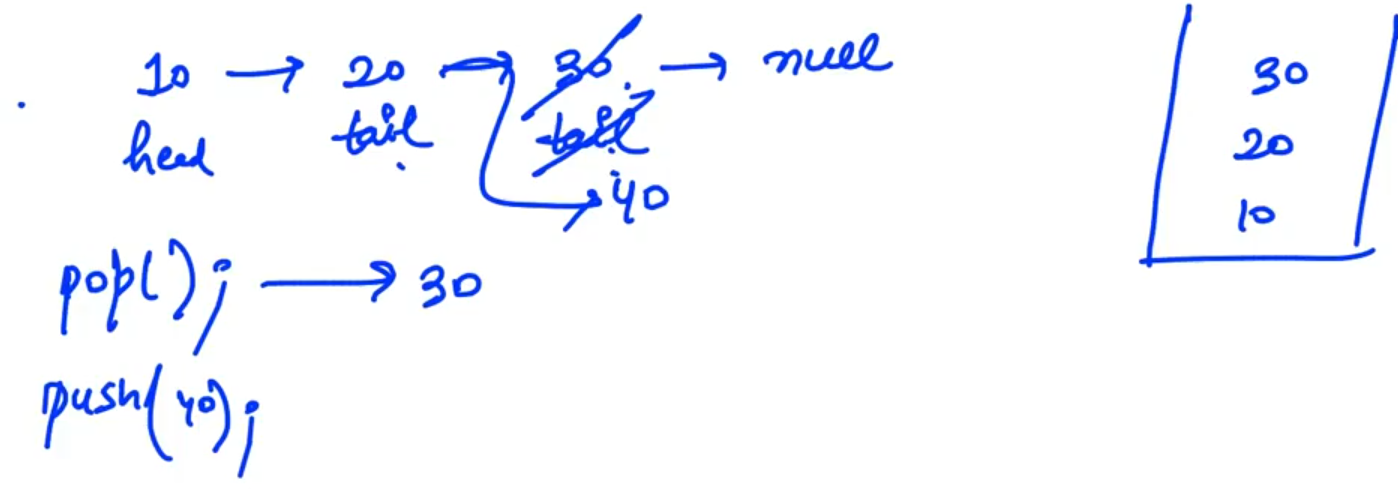 10 → 20 → 30 → null
head tail tail
40
pop(); → 30
push(40);
30
20
10